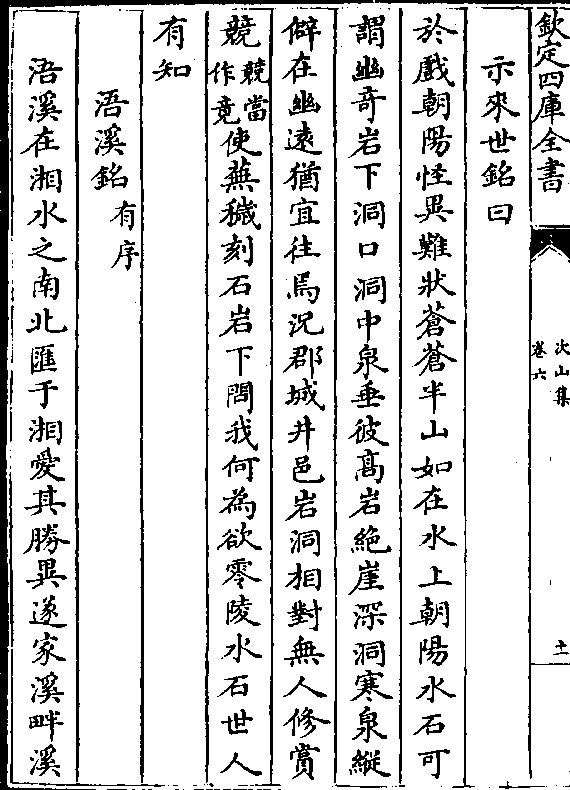 欽定四庫全書
次山集
卷六
十一
示來世銘曰
於戲朝陽怪異難狀蒼蒼半山如在水上朝陽水石可
謂幽奇岩下洞口洞中泉垂彼髙岩絶崖深洞寒泉縦
僻在幽遠猶宜往焉況郡城井邑岩洞相對無人修賞
競競當作竟使蕪穢刻石岩下問我何為欲零陵水石世人
有知
浯溪銘有序
浯溪在湘水之南北匯于湘愛其勝異遂家溪畔溪